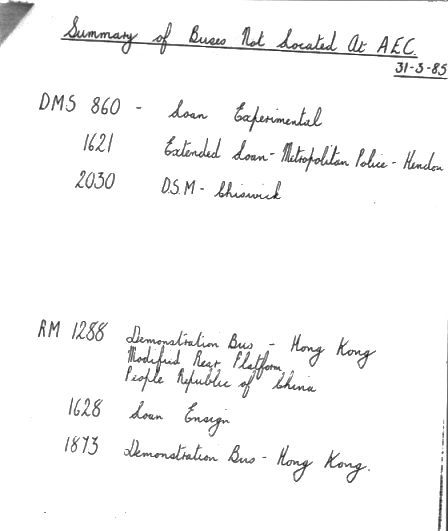 Summary of Buses Not Located At AEC.
31-3-85
DMS 860 - Loan Experimental
1621 Extended Loan - Metropolitan Police - Hendon
2030 D.S.M - Chiswick
RM 1288 Demonstration Bus - Hong Kong
Modified Rear Platform
People Republic of China
1628 Loan Ensign
1873 Demonstration Bus - Hong Kong.